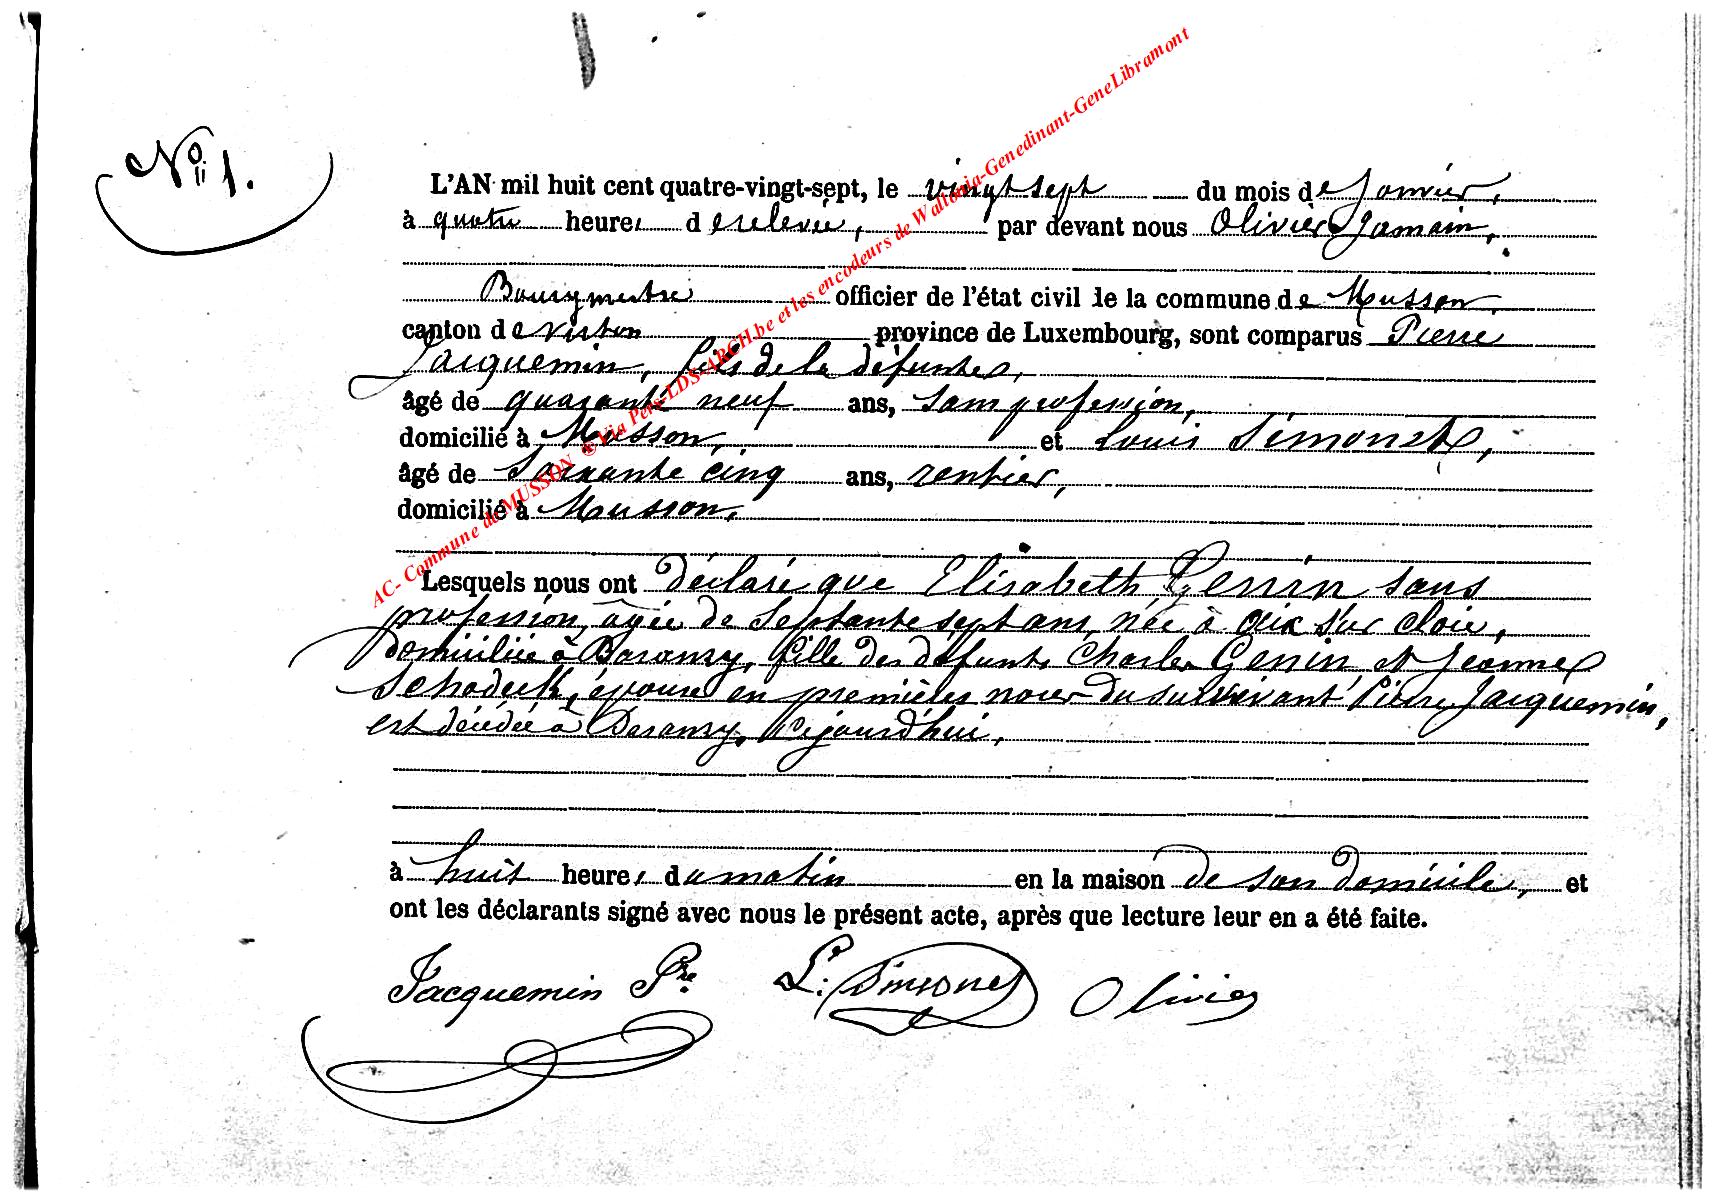 N° 1.
L'AN mil huit cent quatre-vingt-sept, le vingt sept du mois de Janvier,
à quatre heures de relevée, par devant nous Olivier Jamain,
Bourgmestre officier de l'état civil de la commune de Musson,
canton de Virton province de Luxembourg, sont comparus Pierre
Jacquemin, fils de la défunte,
âgé de quarante neuf ans, sans profession,
domicilié à Musson, et Louis Simonet,
âgé de soixante cinq ans, rentier,
domicilié à Musson,
Lesquels nous ont déclaré que Elisabeth Genin sans
profession, âgée de septante sept ans, née à Aix sur Cloie,
domiciliée à Baranzy, fille des défunts Charles Genin et Jeanne
Schodeck, épouse en premières noces du survivant Pierre Jacquemin,
est décédée à Baranzy, cejourd'hui,
à huit heures du matin en la maison de son domicile, et
ont les déclarants signé avec nous le présent acte, après que lecture leur en a été faite.
Jacquemin Pre. L. Simonet Olivier
AC- Commune de MUSSON © Via Pers-LDS-ARCH.be et les encodeurs de Wallonia-Genedinant-GeneLibramont